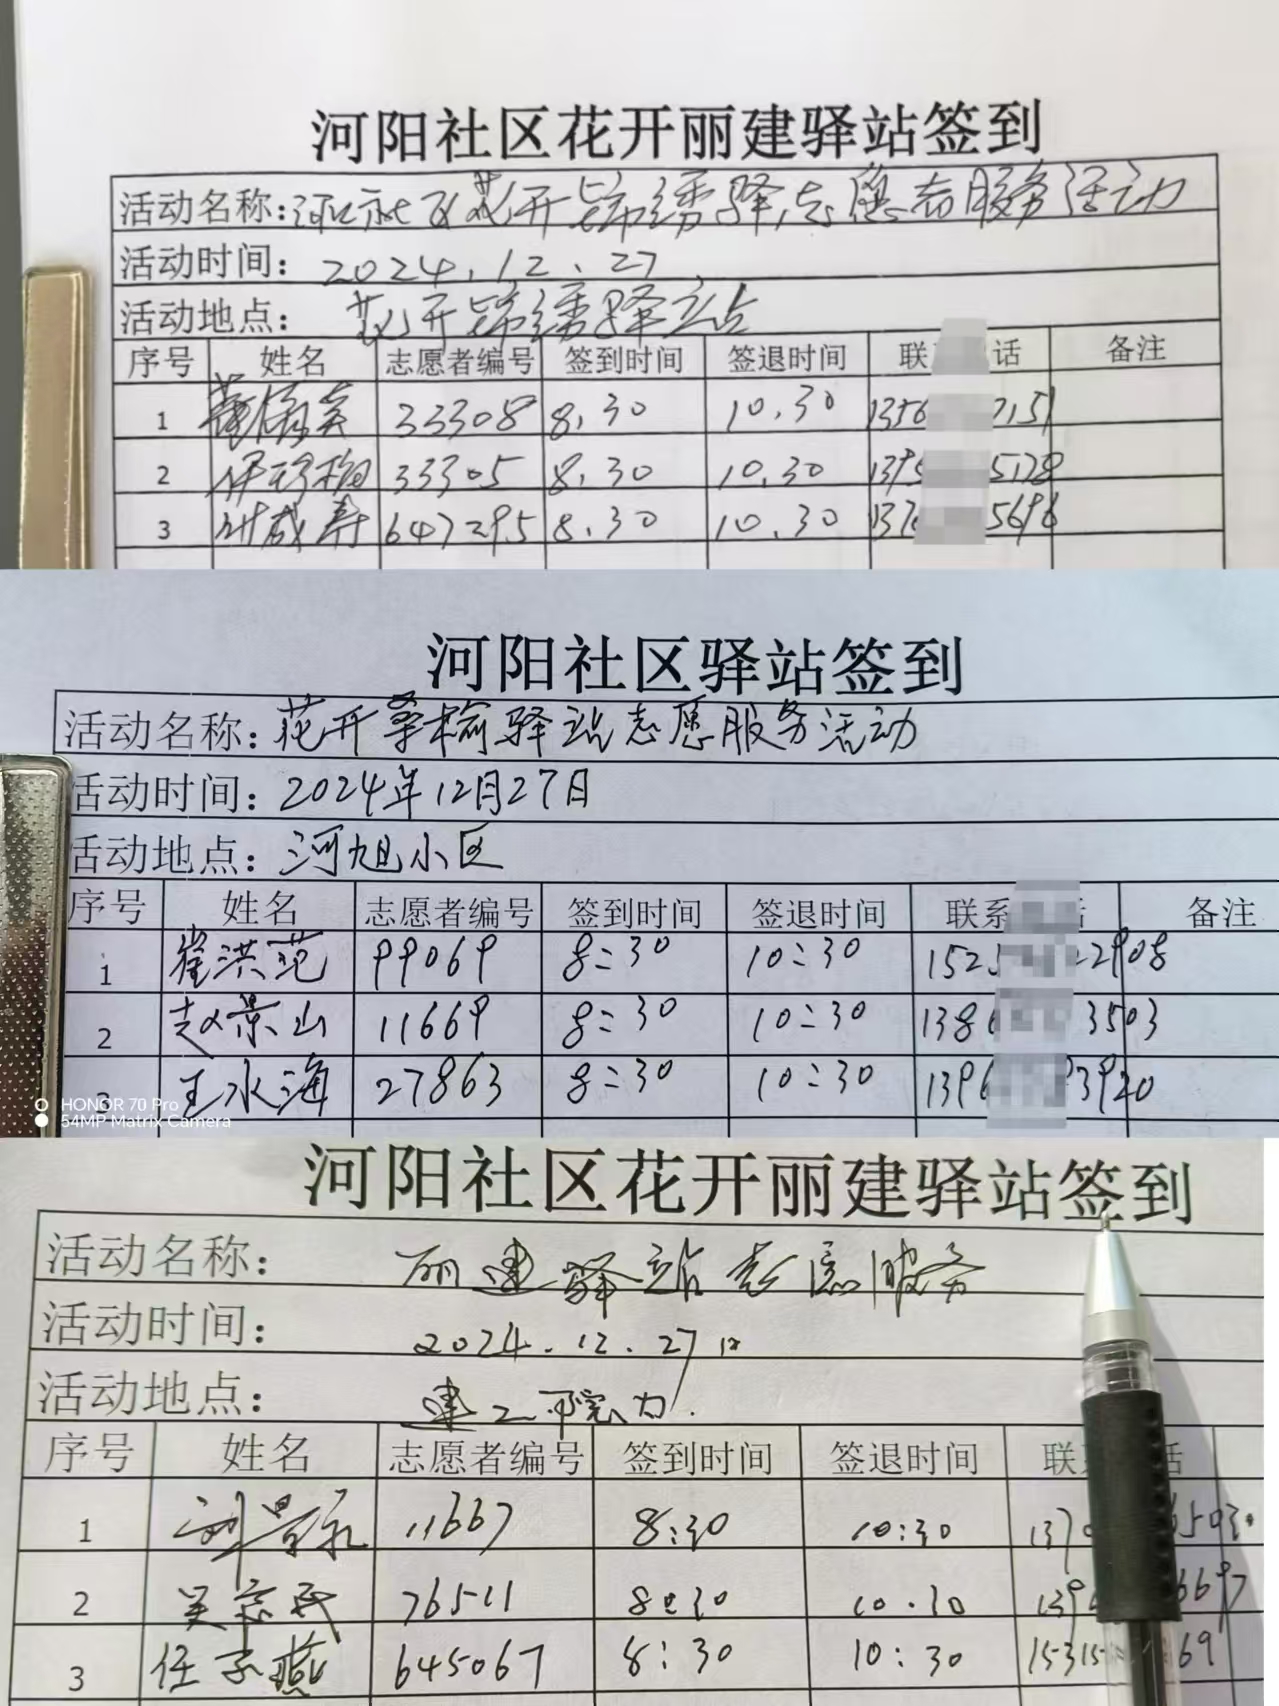 河阳社区花开丽建驿站签到
活动名称: 河社区花开锦绣驿志愿者服务活动
活动时间: 2024.12.27
活动地点: 花开锦绣驿站
序号 姓名 志愿者编号 签到时间 签退时间 联 话 备注
1 33308 8.30 10.30 1356 7151
2 33305 8.30 10.30 1395 5128
3 647295 8.30 10.30 137 5696
河阳社区驿站签到
活动名称: 花开桑榆驿站志愿服务活动
活动时间: 2024年12月27日
活动地点: 河旭小区
序号 姓名 志愿者编号 签到时间 签退时间 联系 话 备注
1 崔洪范 99069 8:30 10:30 152 2908
2 赵景山 11669 8:30 10:30 138 3503
3 王水海 27863 8:30 10:30 139 3920
HONOR 70 Pro
54MP Matrix Camera
河阳社区花开丽建驿站签到
活动名称: 丽建驿站志愿服务
活动时间: 2024.12.27日
活动地点: 建工
序号 姓名 志愿者编号 签到时间 签退时间 联 话
1 11667 8:30 10:30 137 6503
2 吴 76511 8:30 10.30 139 6697
3 任子燕 645067 8:30 10:30 15315 69